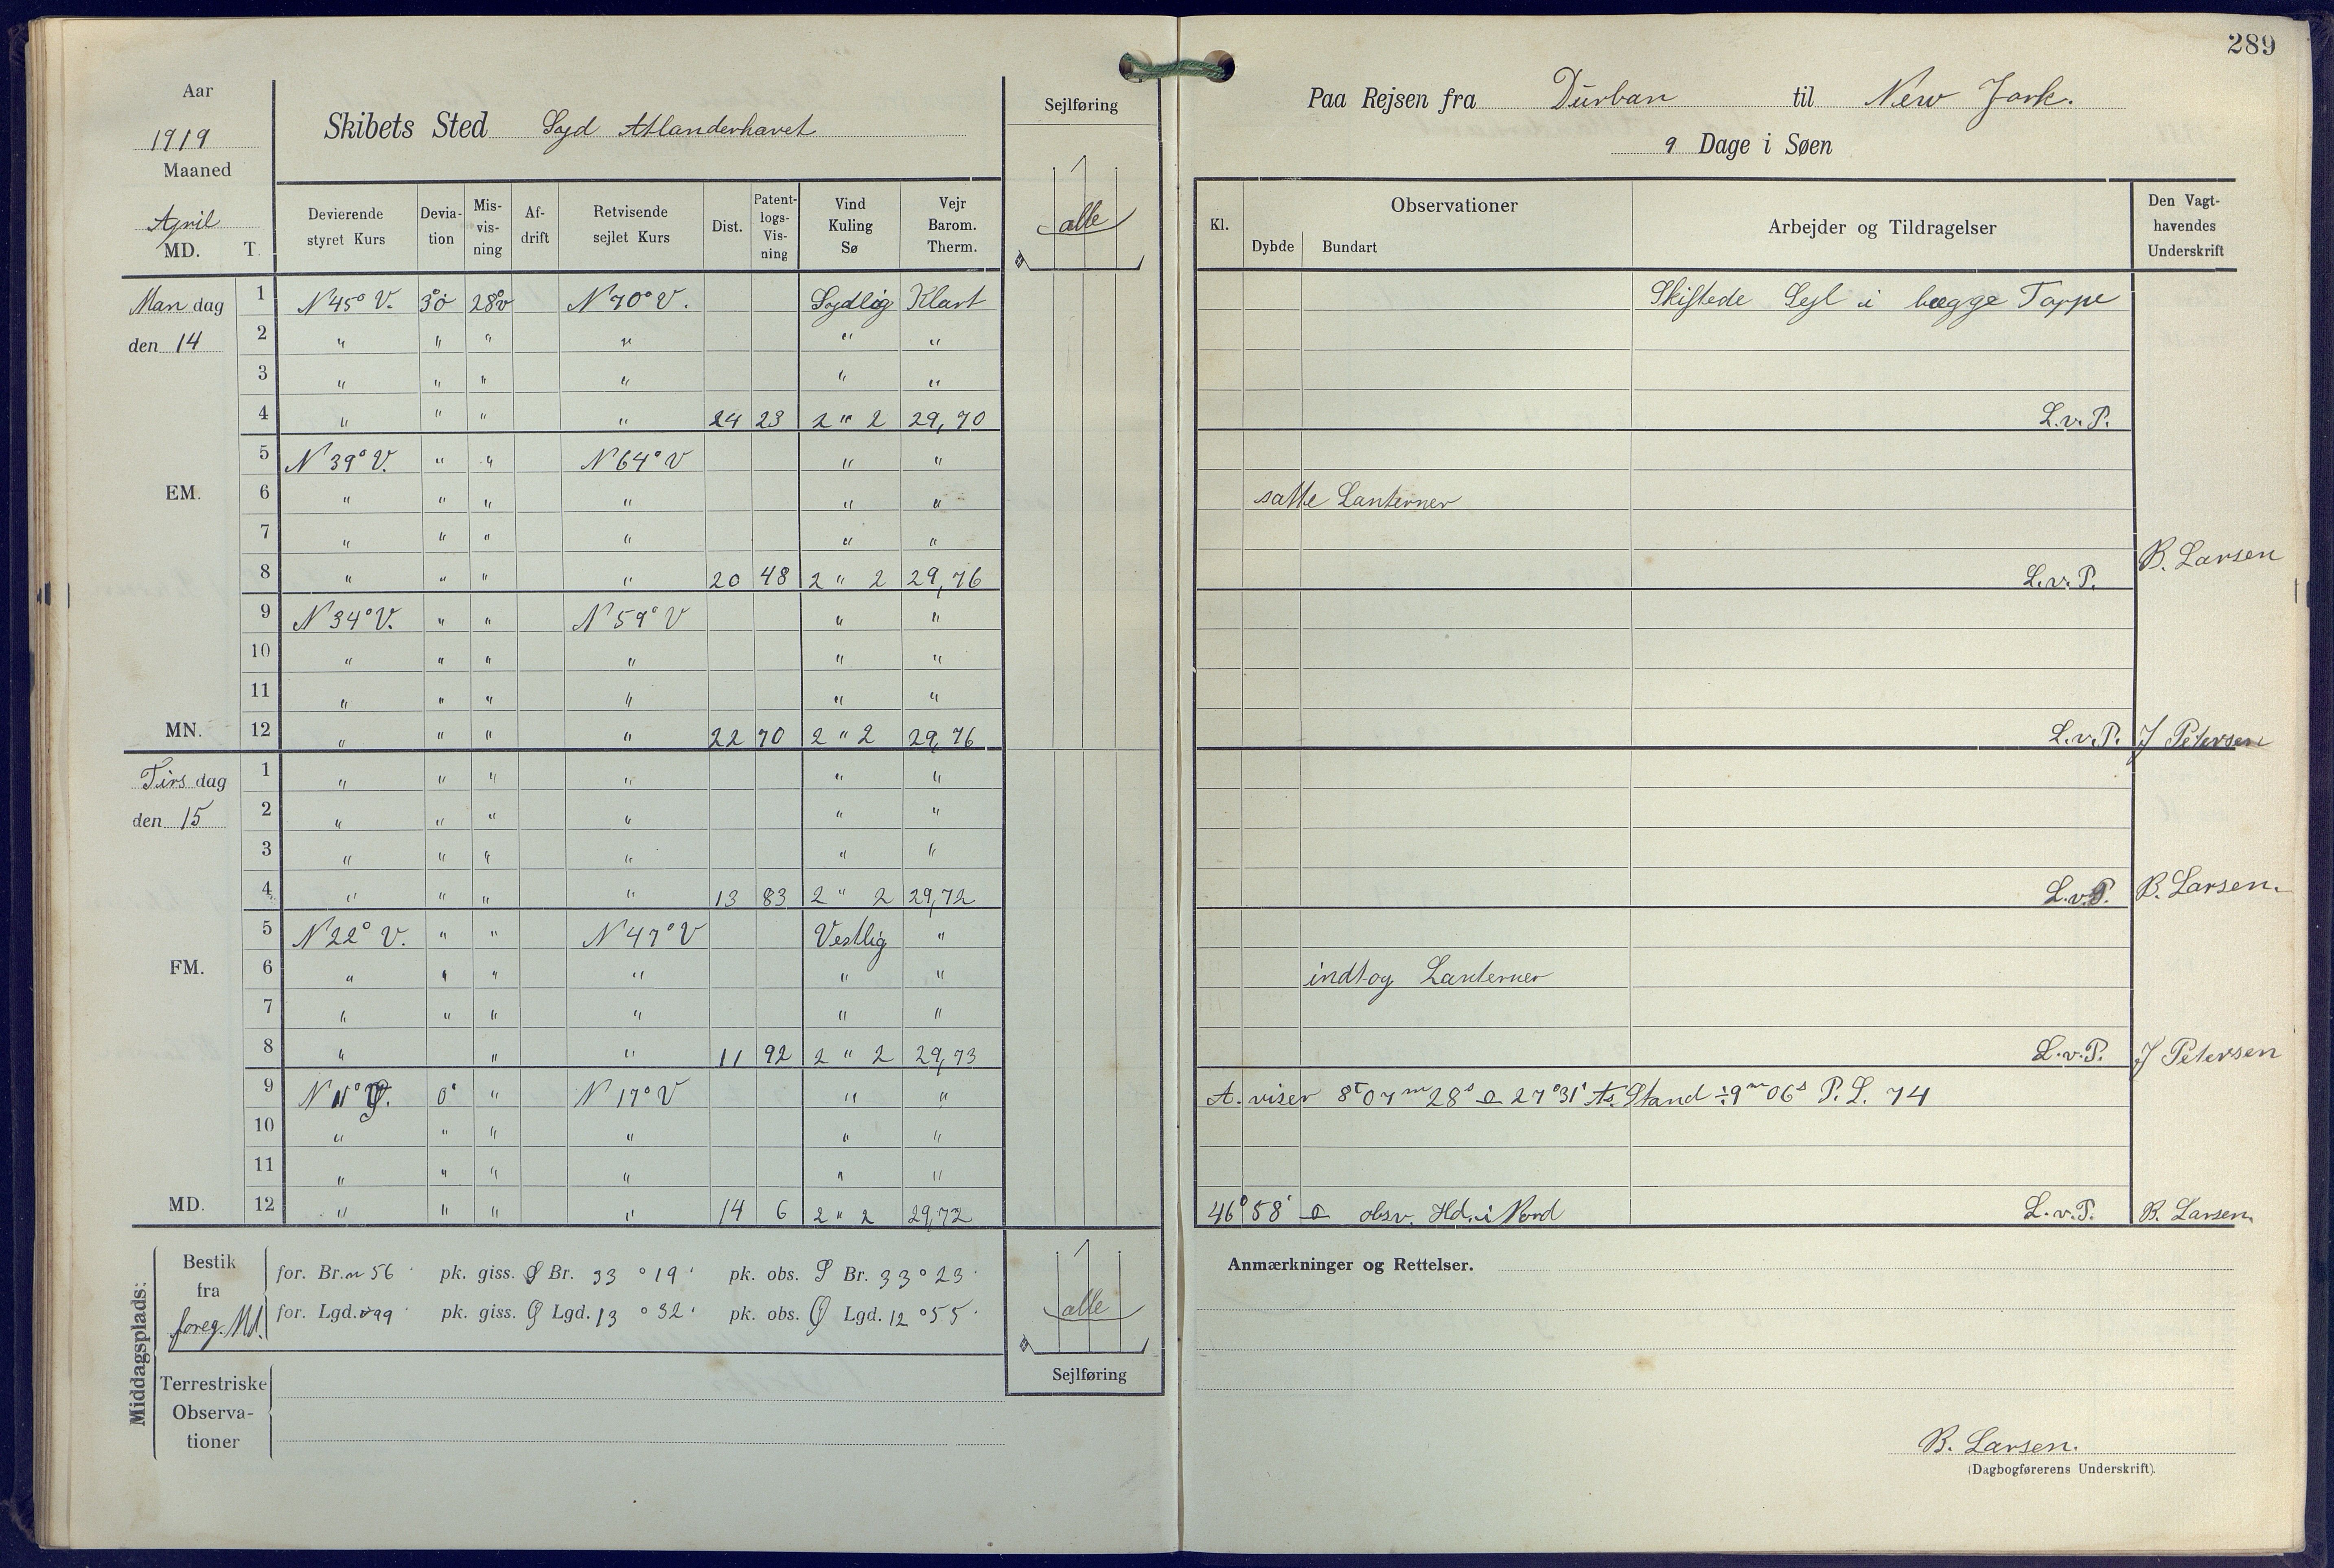 289
Aar
1919
Maaned
April
MD. T.
Skibets Sted Syd Atlanderhavet
Sejlføring
alle
Paa Rejsen fra Durban til New Jork.
9 Dage i Søen
Devierende styret Kurs | Devia-tion | Mis-vis-ning | Af-drift | Retvisende sejlet Kurs | Dist. | Patent-logs-Vis-ning | Vind Kuling Sø | Vejr Barom. Therm.
Kl. | Observationer | Dybde | Bundart | Arbejder og Tildragelser | Den Vagt-havendes Underskrift
Man dag 1 N 45° V. 3° ö 28° v N 70° V. Sydlig Klart Skiftede Sejl i begge Toppe
den 14 2 " " " " " "
3 " " " " " "
4 " " " " 24 23 2 " 2 29,70 L.v.P.
5 N 39° V. " " N 64° V " "
EM. 6 " " " " " " satte Lanterner
7 " " " " " "
8 " " " " 20 48 2 " 2 29,76 L.v.P. B. Larsen
9 N 34° V. " " N 59° V " "
10 " " " " " "
11 " " " " " "
MN. 12 " " " " 22 70 2 " 2 29,76 L.v.P. J Petersen
Tirs dag 1 " " " " " "
den 15 2 " " " " " "
3 " " " " " "
4 " " " " 13 83 2 " 2 29,72 L.v.P. B. Larsen.
5 N 22° V. " " N 47° V Vestlig "
FM. 6 " " " " " " indtog Lanterner
7 " " " " " "
8 " " " 11 92 2 " 2 29,73 L.v.P. J Petersen
9 N 11° 0° " N 17° V " " A. viser 8 07 m 28 s 27° 31' As. Stand ÷ 9 m 06 s P. L. 74
10 " " " " " "
11 " " " " " "
MD. 12 " " " " 14 6 2 " 2 29,72 46° 58' obsv. Hd. i Nord L.v.P. B. Larsen.
Middagsplads:
Bestik fra foreg. Md.
for. Br. n 56 ' pk. giss. S Br. 33 ° 19 ' pk. obs. S Br. 33 ° 23 '
for. Lgd. v 99 ' pk. giss. Ø Lgd. 13 ° 32 ' pk. obs. Ø Lgd. 12 ° 55 '
Terrestriske Observa-tioner
alle
Sejlføring
Anmærkninger og Rettelser.
B. Larsen.
(Dagbogførerens Underskrift).